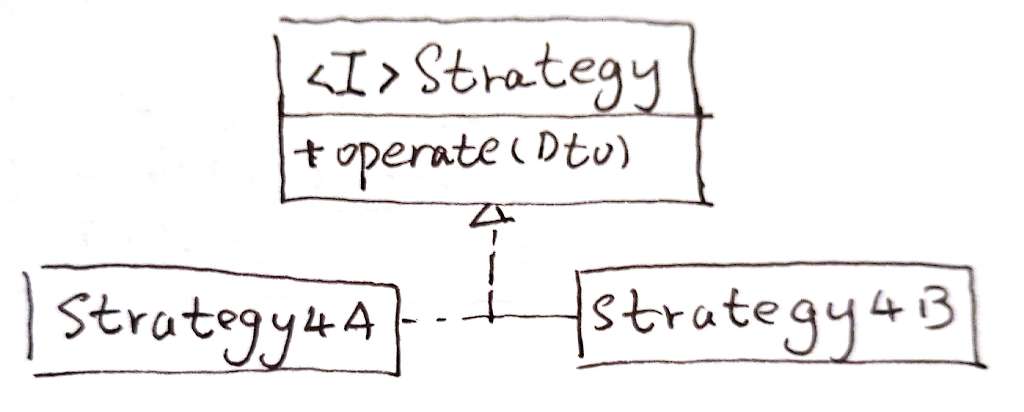 <I> Strategy
+ operate(Dto)
Strategy4A
Strategy4B